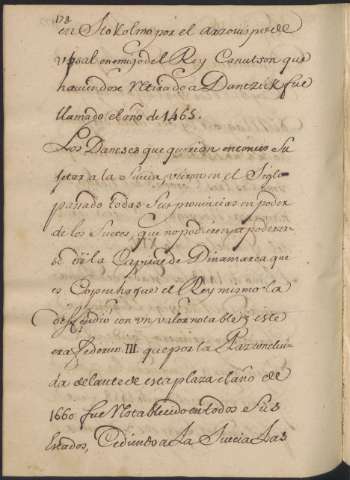 178
en Stokolmo por el Arzouispo de
Vpsal enemigo del Rey Canutson que
haviendose Retirado a Dantzick fue
llamado el año de 1465.
Los Daneses que querian entonces Su
jetar a la Suecia, vieron en el Siglo
passado todas Sus provincias en poder
de los Suecos, que no pudieron apoderar
se de la Capital de Dinamarca que
es Copenhaguen el Rey mismo la
defendio con vn valor notable, y este
era Federico III. que por la Paz conclui-
da delante de esta plaza el año de
1660 fue Restablecido en todos Sus
Estados, Cediendo a La Suecia Las